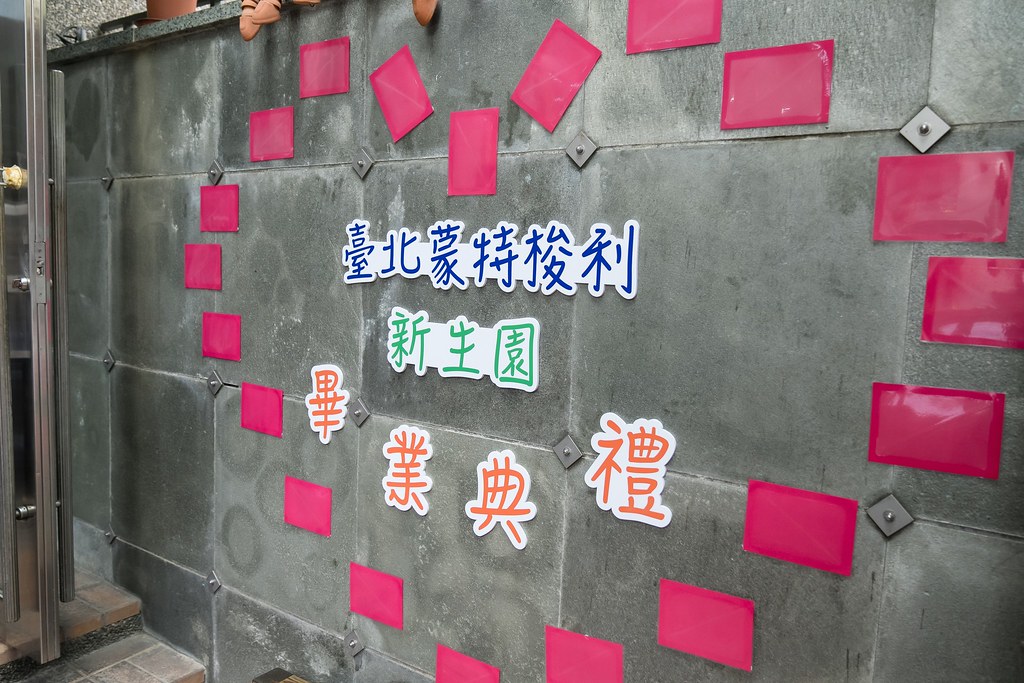 臺北蒙特梭利
新生園
畢業典禮